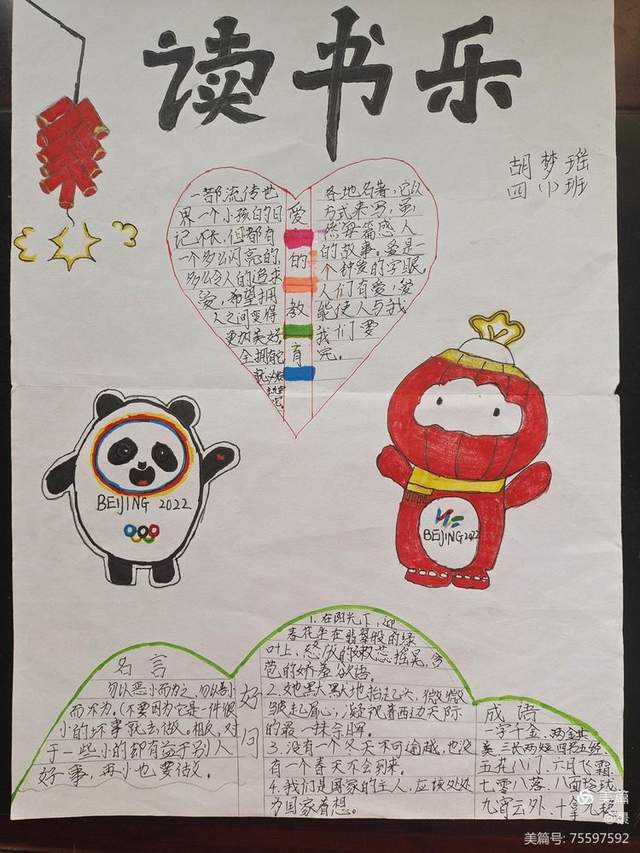 读书乐
胡梦瑶
四小班
爱的教育
一部流传世
界一个小孩的日
记不长,但都有
一个多么闪亮的,
多么令人的追求
爱,希望拥
人之间变得
更加美好
全拥能
各地名著,它以
方式来写,虽
然每篇感人
的故事。爱是一
个种爱的字眼,
人们有爱,爱
能使人与我
我们要
完。
BEIJING 2022
BEIJING2022
名言
勿以恶小而为之,勿以善
而不为,(不要因为它是一件很
小的坏事就去做,相反,对
于一些小的都有益于别人
好事,再小也要做。
好句
1.在阳光下,迎
春花开在翡翠般的绿
叶上,
2.她默默地抬起头,微微
皱起眉心,凝视着西边天际
的最一抹
3.没有一个冬天不可逾越,也没
有一个春天不会到来。
4.我们是国家的主人,应该处处
为国家着想。
成语
一字千金,两全其
美,三长两短,四书五经
五花八门,六月飞霜
七零八落,八面玲珑
九霄云外,十拿九稳
美篇
美篇号: 75597592